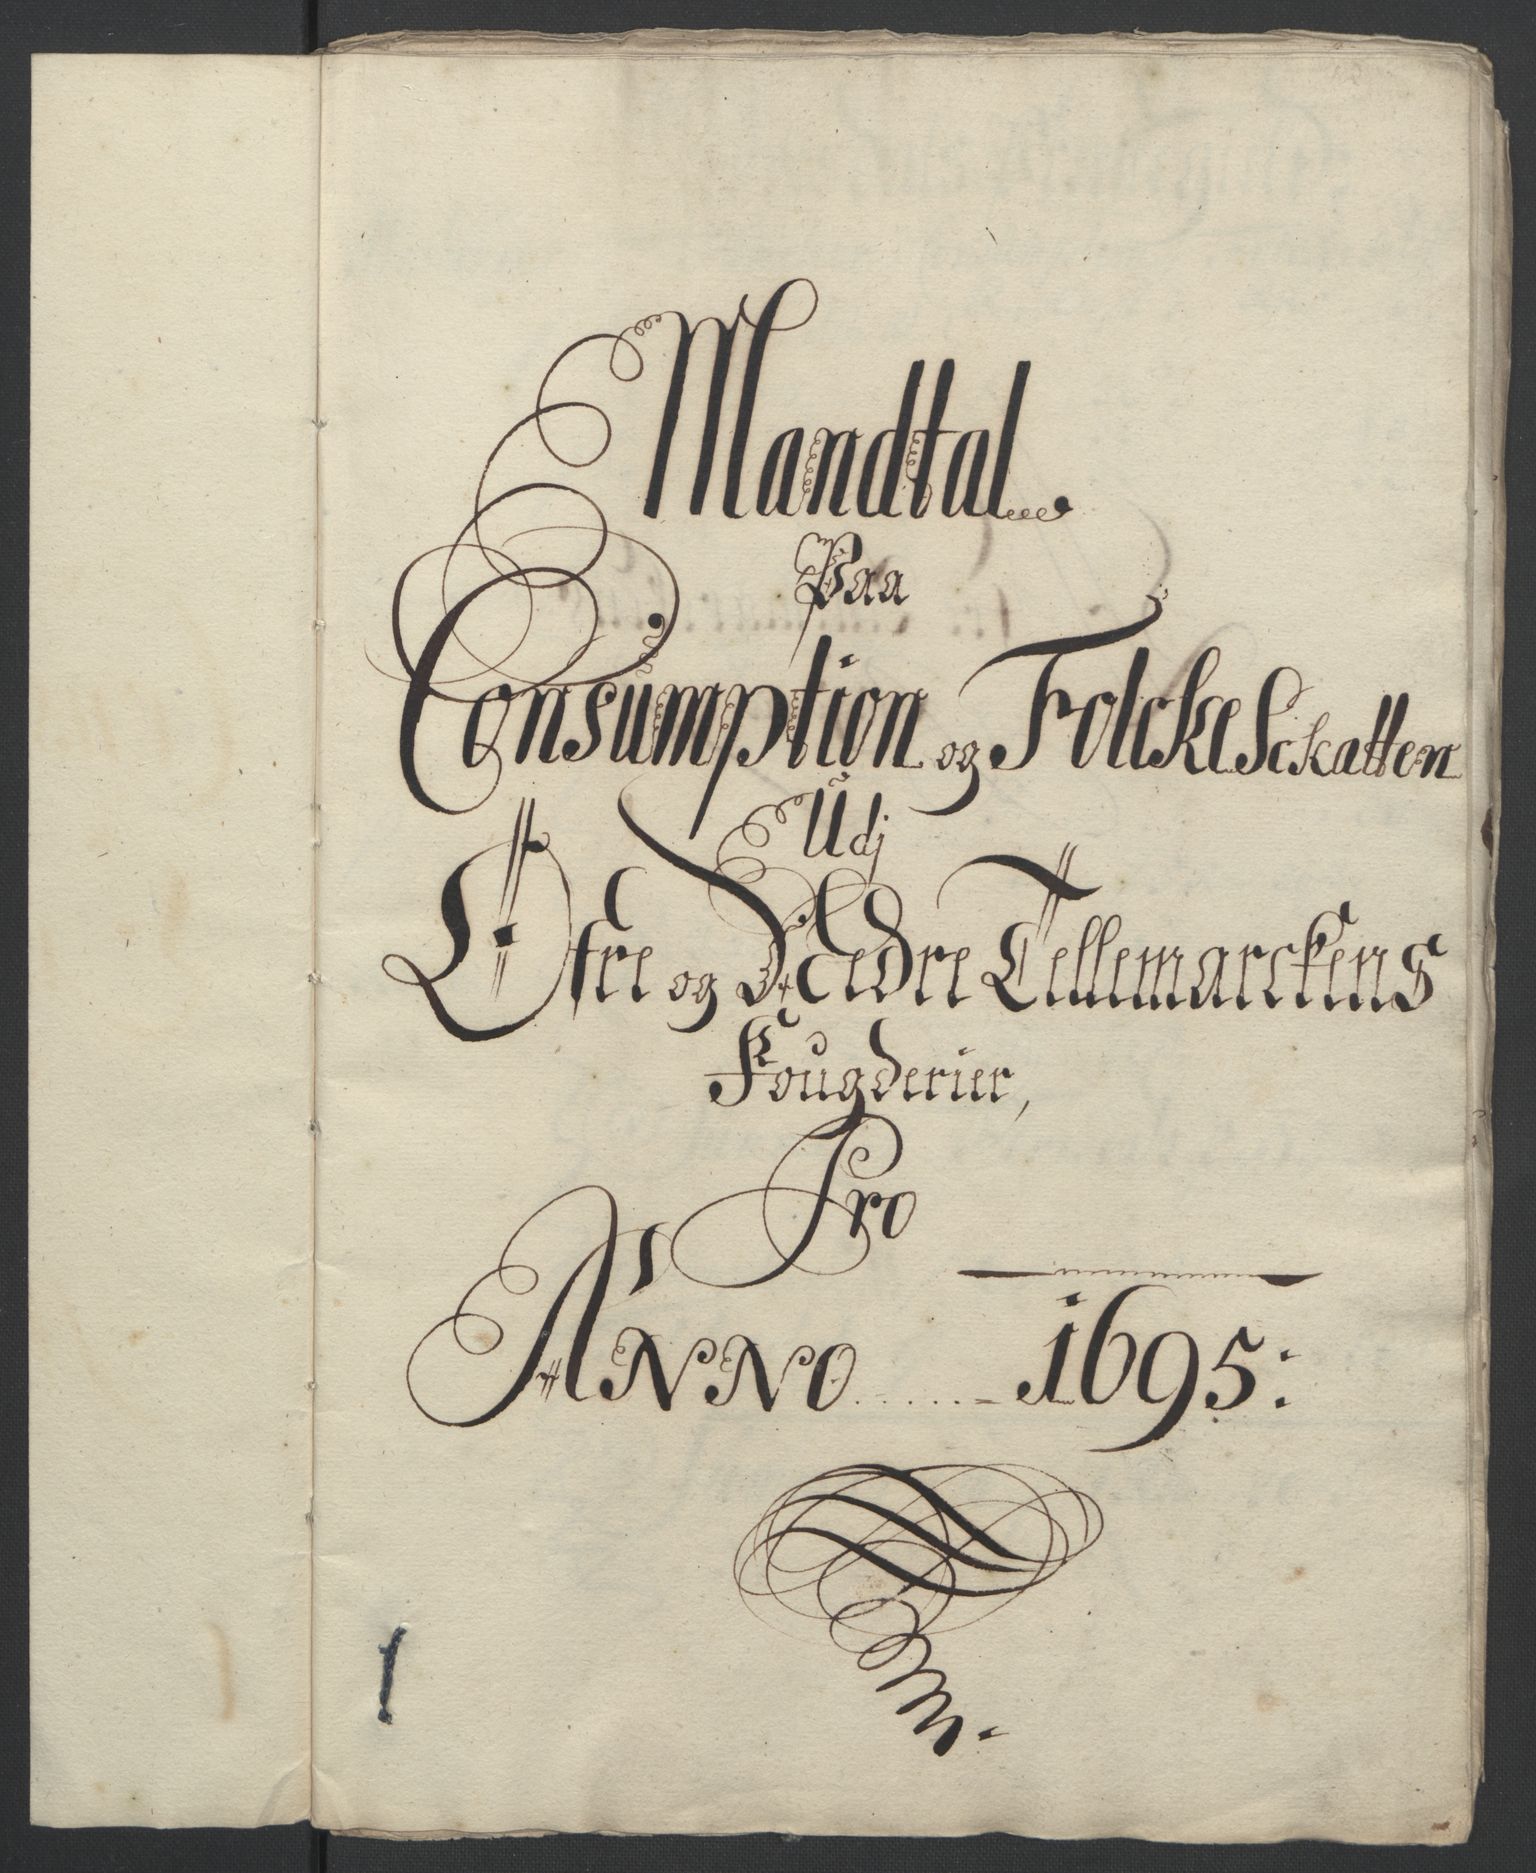 Mandtal
Paa
Consumption og Folcke Sckatten
Udj
Øfre og Nedre Tellemarckens
Fougderier,
Pro
ANNO ...... 1695: